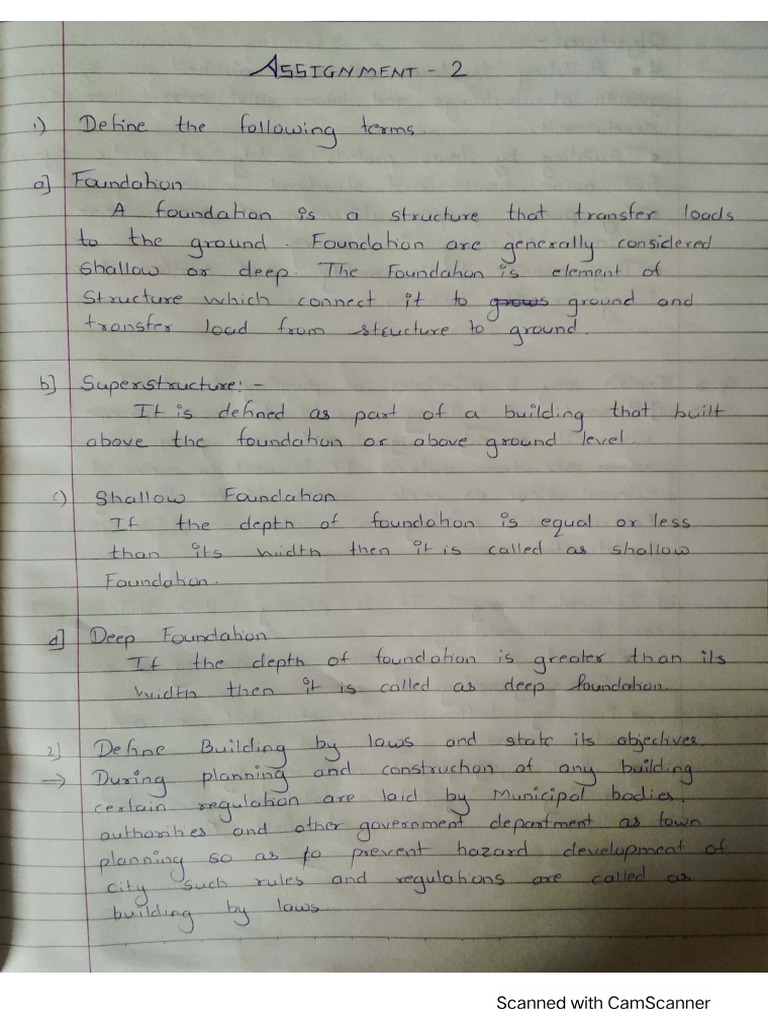 ASSIGNMENT - 2
1) Define the following terms.
a] Foundation
A foundation is a structure that transfer loads
to the ground. Foundation are generally considered
shallow or deep. The Foundation is element of
structure which connect it to ground and
transfer load from structure to ground.
b] Superstructure: -
It is defined as part of a building that built
above the foundation or above ground level.
c) Shallow Foundation
If the depth of foundation is equal or less
than its width then it is called as shallow
Foundation.
d] Deep Foundation
If the depth of foundation is greater than its
width then it is called as deep foundation.
2] Define Building by laws and state its objectives.
→ During planning and construction of any building
certain regulation are laid by Municipal bodies,
authorities and other government department as town
planning so as to prevent hazard development of
city such rules and regulations are called as
building by laws.
Scanned with CamScanner